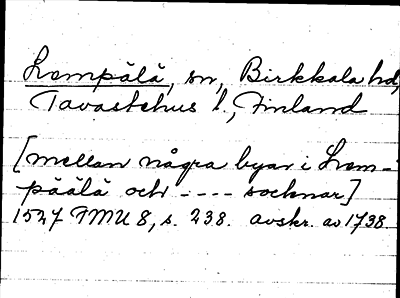 Lempälä, sn, Birkkala hd,
Tavastehus l., Finland
[mellan några byar i Lem-
päälä och - - - - socknar]
1527 FMU 8, s. 238. avskr. av 1738.